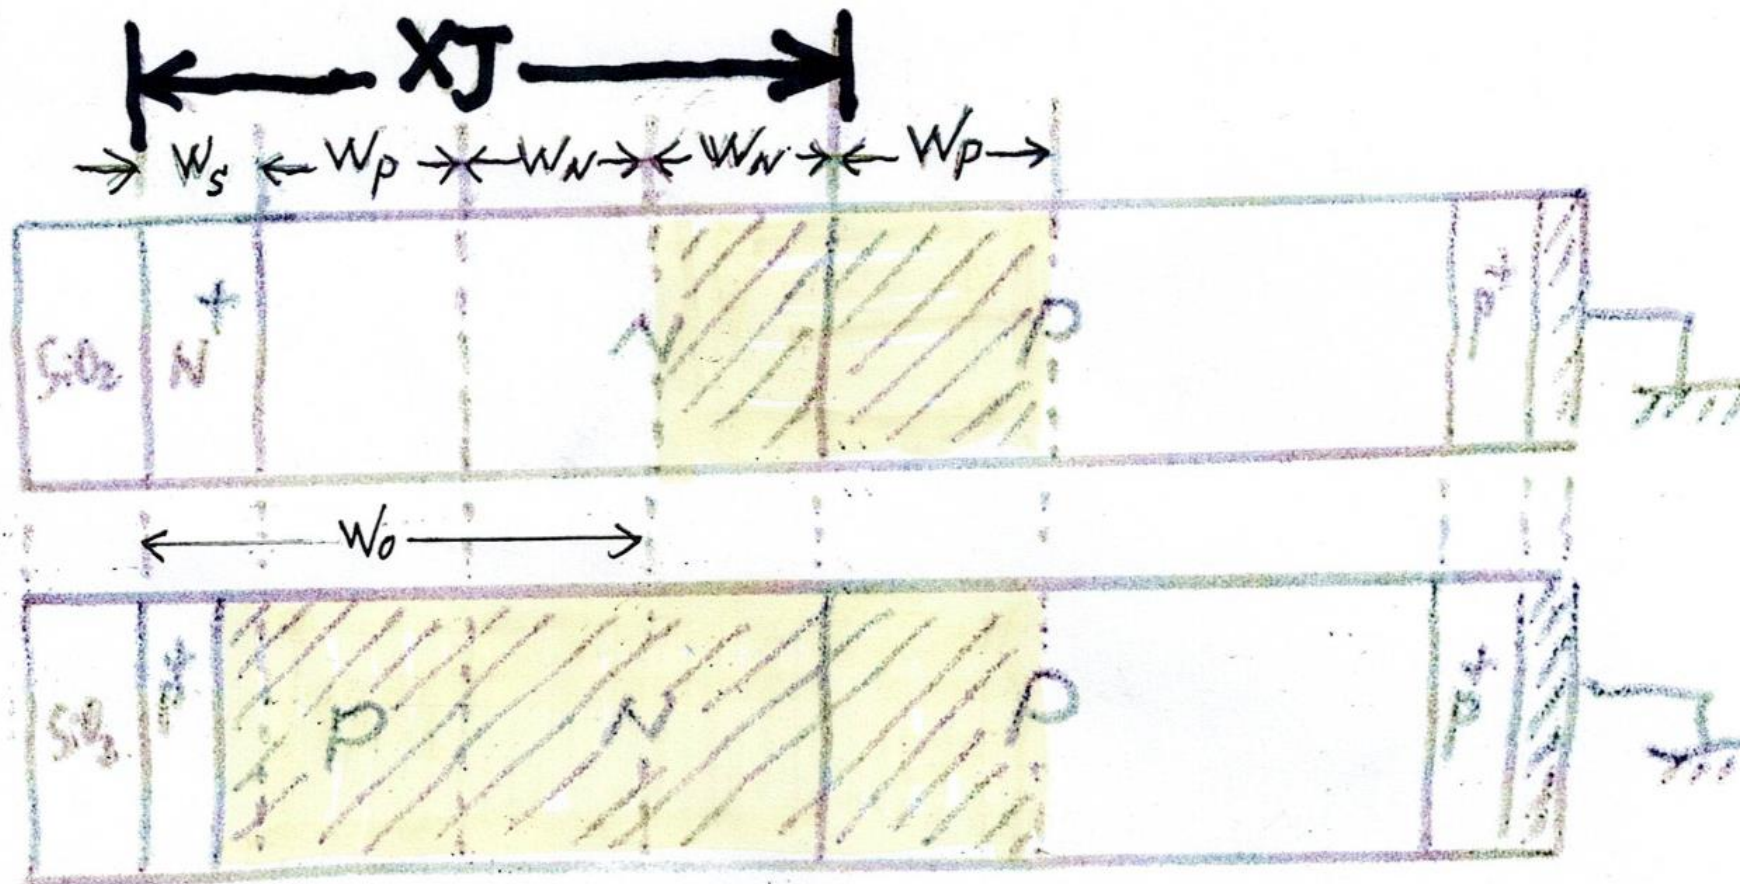 XJ
Ws Wp WN WN Wp
SiO2 N+ N P P+
Wo
SiO2 P+ P N P P+